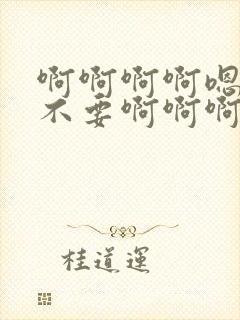 啊啊啊啊嗯
不要啊啊啊
桂道运